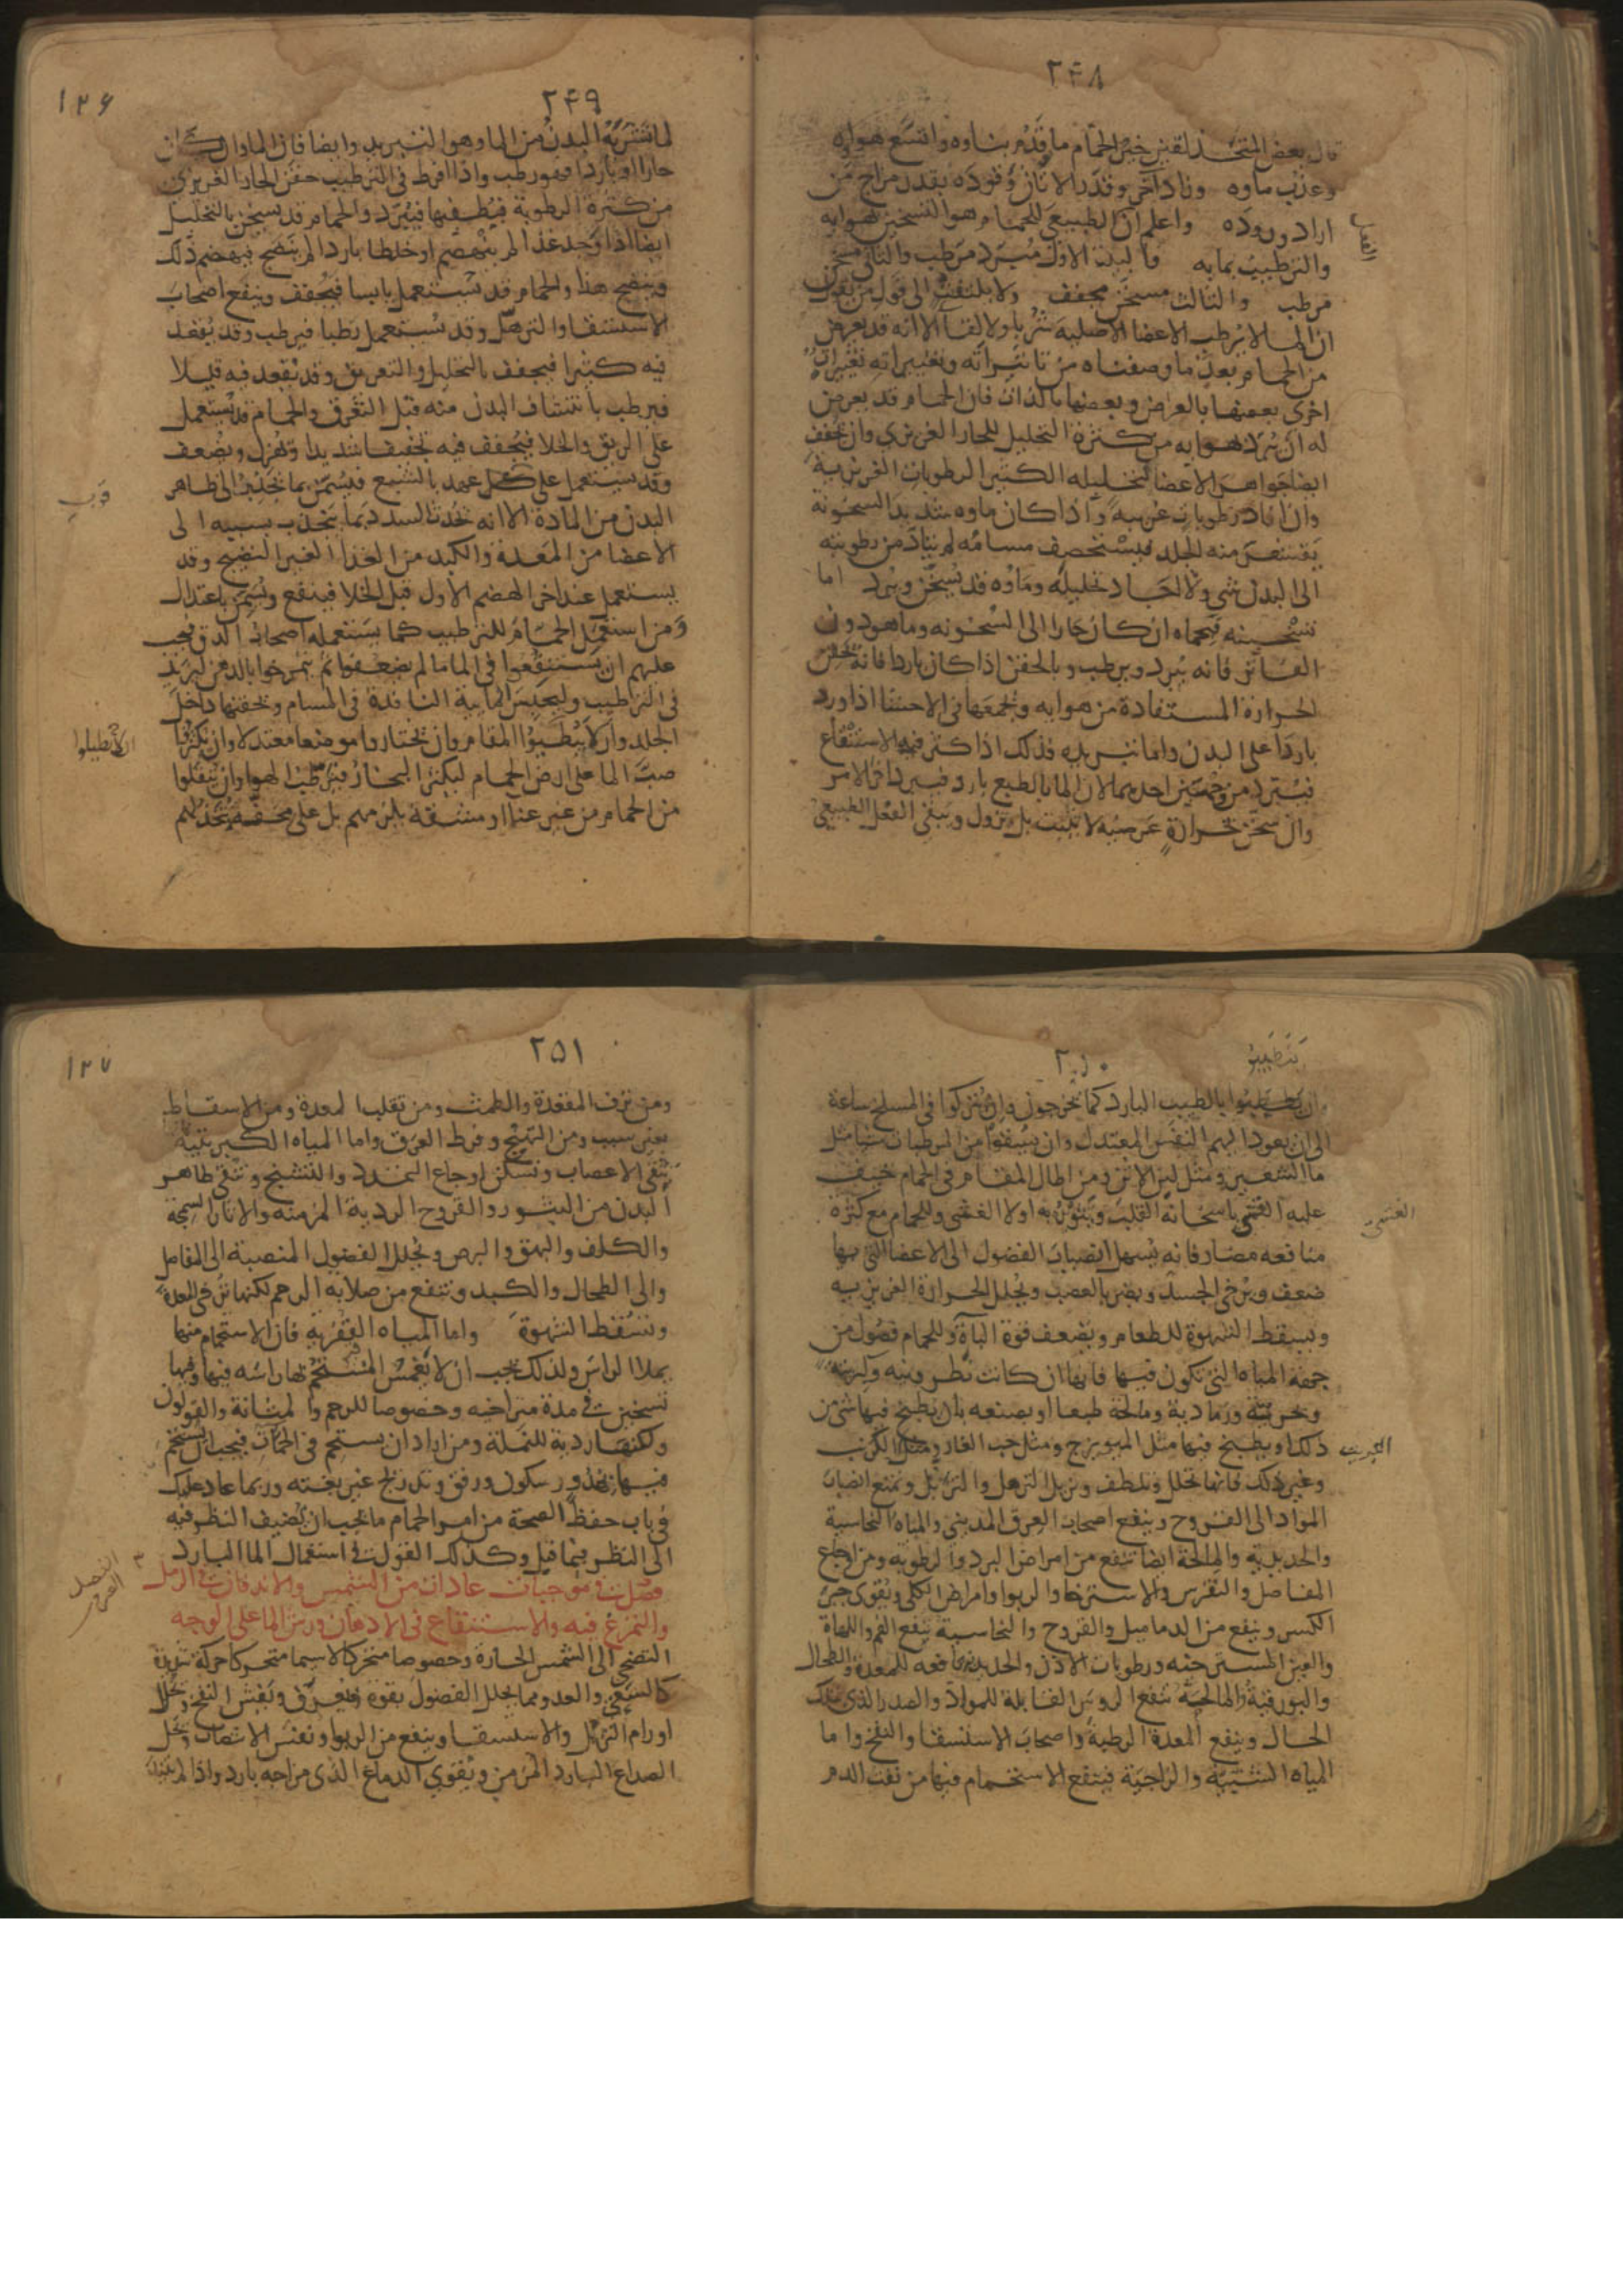 ٢٤٨
قال بعض المتحذلقين خير الحمام ما قدم بناوه واتسع هواوه
وعذب ماوه وزاد اخر وقدر الاتان وقوده بقدر مزاج من
اراد وروده واعلم ان الطبيعي للحمام هو التسخين بهوايه
والترطيب بمايه فالبيت الاول مبرد مرطب والثاني مسخن
مرطب والثالث مسخن مجفف ولا يلتفت الى قول من يقول
ان الما لا يرطب الاعضا الاصلية شربا ولا لقا الا انه قد يعرض
من الحمام بعد ما وصفناه من تاثيراته وتغييراته تغييرات
اخرى بعضها بالعرض وبعضها بالذات فان الحمام قد يعرض
له ان يبرد بهوايه من كثرة التحليل للحار الغريزي وان يجفف
ايضا جواهر الاعضا لتحليله الكثير الرطوبات الغريزية
وان افاد رطوبات غريبة واذا كان ماوه شديد السخونة
يقشعر منه الجلد فيستحصف مسامه لم يتاد من رطوبته
الى البدن شي ولا اجاد تحليله وماوه قد يسخن ويبرد اما
تسخينه فبحماه ان كان حارا الى السخونه وما هو دون
الفاتر فانه يبرد ويرطب وبالحقن اذا كان باردا فانه يحقن
الحرارة المستفادة من هوايه ويجمعها في الاحشا اذا ورد
باردا على البدن واما تبريده فذلك اذا كثر فيه الاستنقاع
فيبرد من وجهين احدهما لان الما بالطبع بارد فيبرد اخر الامر
وان سخن بحرارة عرضية لا تثبت بل تزول ويبقى الفعل الطبيعي
الفعل
٢٤٩
١٢٦
لما تشربه البدن من الما وهو التبريد وايضا فان الما وان كان
حارا او باردا فهو رطب واذا افرط في الترطيب حقن الحار الغريزي
من كثرة الرطوبة فيطفيها فيبرد والحمام قد يسخن بالتحليل
ايضا اذا وجد غذا لم ينهضم او خلطا باردا لم ينضج فيهضم ذلك
وينضج هذا والحمام قد يستعمل يابسا فيجفف وينفع اصحاب
الاستسقا والترهل وقد يستعمل رطبا فيرطب وقد يقعد
فيه كثيرا فيجفف بالتحليل والتعريق وقد يقعد فيه قليلا
فيرطب بانتشاف البدن منه قبل التعرق والحمام قد يستعمل
على الريق والخلا فيجفف فيه تجفيفا شديدا ويهزل ويضعف
وقد يستعمل على عهد بالشبع فيسمن بما يجذب الى ظاهر
البدن من المادة الا انه يحدث السدد بما ينجذب بسببه الى
الاعضا من المعدة والكبد من الغذا الغير النضيج وقد
يستعمل عند اخر الهضم الاول قبل الخلا فينفع ويسمن باعتدال
ومن استعمل الحمام للترطيب كما يستعمله اصحاب الدق فيجب
عليهم ان يستنقعوا في الما ما لم يضعفوا ثم يتمرخوا بالدهن ليزيد
في الترطيب وليحبس المايية النافذة في المسام ويحقنها داخل
الجلد وان لا يبطيوا المقام وان يختاروا موضعا معتدلا وان يكثروا
صب الما على ارض الحمام ليكثر البخار فيرطب الهوا وان ينقلوا
من الحمام من غير عنا او مشقة يلزمهم بل على محفة تتخذ لهم
٢٥٠
وان يطيبوا بالطيب البارد كما يخرجون وان يتركوا في المسلخ ساعة
الى ان يعود اليهم النفس المعتدل وان يسقوا من المرطبات شيا مثل
ما الشعير ومثل لبن الاتن ومن اطال المقام في الحمام خيف
عليه الغشي باسخانه القلب ويثور به اولا الغثي وللحمام مع كثرة
منافعه مضار فانه يسهل انصباب الفضول الى الاعضا التي بها
ضعف ويرخي الجسد ويضر بالعصب ويحلل الحرارة الغريزيه
ويسقط الشهوة للطعام ويضعف قوة الباه وللحمام فضول من
جهة المياه التي تكون فيها فانها ان كانت نطرونيه وكبريتيه
وبحرية ورمادية ومالحة طبعا او بصنعه بان يطبخ فيها شي من
ذلك او يطبخ فيها مثل الميويزج ومثل حب الغار ومثل الكبريت
وغير ذلك فانها تحلل وتلطف وتزيل الترهل والتربل وتمنع انصباب
المواد الى القروح وينفع اصحاب العرق المديني والمياه النحاسية
والحديديه والمالحة ايضا تنفع من امراض البرد والرطوبه ومن اوجاع
المفاصل والنقرس والاسترخا والربو وامراض الكلى ويقوي جبر
الكسر وينفع من الدماميل والقروح والنحاسية تنفع الفم واللهاة
والعين المسترخيه ورطوبات الاذن والحديدية نافعه للمعدة والطحال
والبورقية والمالحة تنفع الروس القابلة للمواد والصدر الذي بتلك
الحال وينفع المعدة الرطبة واصحاب الاستسقا والنفخ واما
المياه الشبية والزاجية فينفع الاستحمام فيها من نفث الدم
٢٥١
١٢٧
ومن نزف المقعدة والطمث ومن تقلب المعدة ومن الاسقاط
بغير سبب ومن التهيج وفرط العرق واما المياه الكبريتية
تنقي الاعصاب وتسكن اوجاع التمدد والتشنج وتنقي ظاهر
البدن من البثور والقروح الردية المزمنه والاثار السمجة
والكلف والبهق والبرص ويحلل الفضول المنصبة الى المفاصل
والى الطحال والكبد وتنفع من صلابة الرحم لكنها ترخي المعدة
وتسقط الشهوة واما المياه القفرية فان الاستحمام فيها
يملا الراس ولذلك يجب ان لا يغمس المستحم بها راسه فيها وفيها
تسخين في مدة متراخيه وخصوصا للرحم والمثانة والقولون
ولكنها ردية للثملة ومن اراد ان يستحم في الحمات فيجب ان يستحم
فيها بهدو وسكون ورفق وتدريج غير بغتة وربما عاد عليك
في باب حفظ الصحة من امر الحمام ما يجب ان يضيف النظر فيه
الى النظر فيما قيل وكذلك القول في استعمال الما البارد
فصل في موجبات عادات من التشمس والاندفان في الرمل
والتمرغ فيه والاستنقاع في الادهان ورش الما على الوجه
التضحي الى الشمس الحارة وخصوصا متحركا لاسيما متحركا حركة شديدة
كالسعي والعدو مما يحلل الفضول بقوة ويعرق ويفش النفخ ويحلل
اورام الترهل والاستسقا وينفع من الربو ونفس الانتصاب ويحل
الصداع البارد المزمن ويقوي الدماغ الذي مزاجه بارد واذا لم يبتل